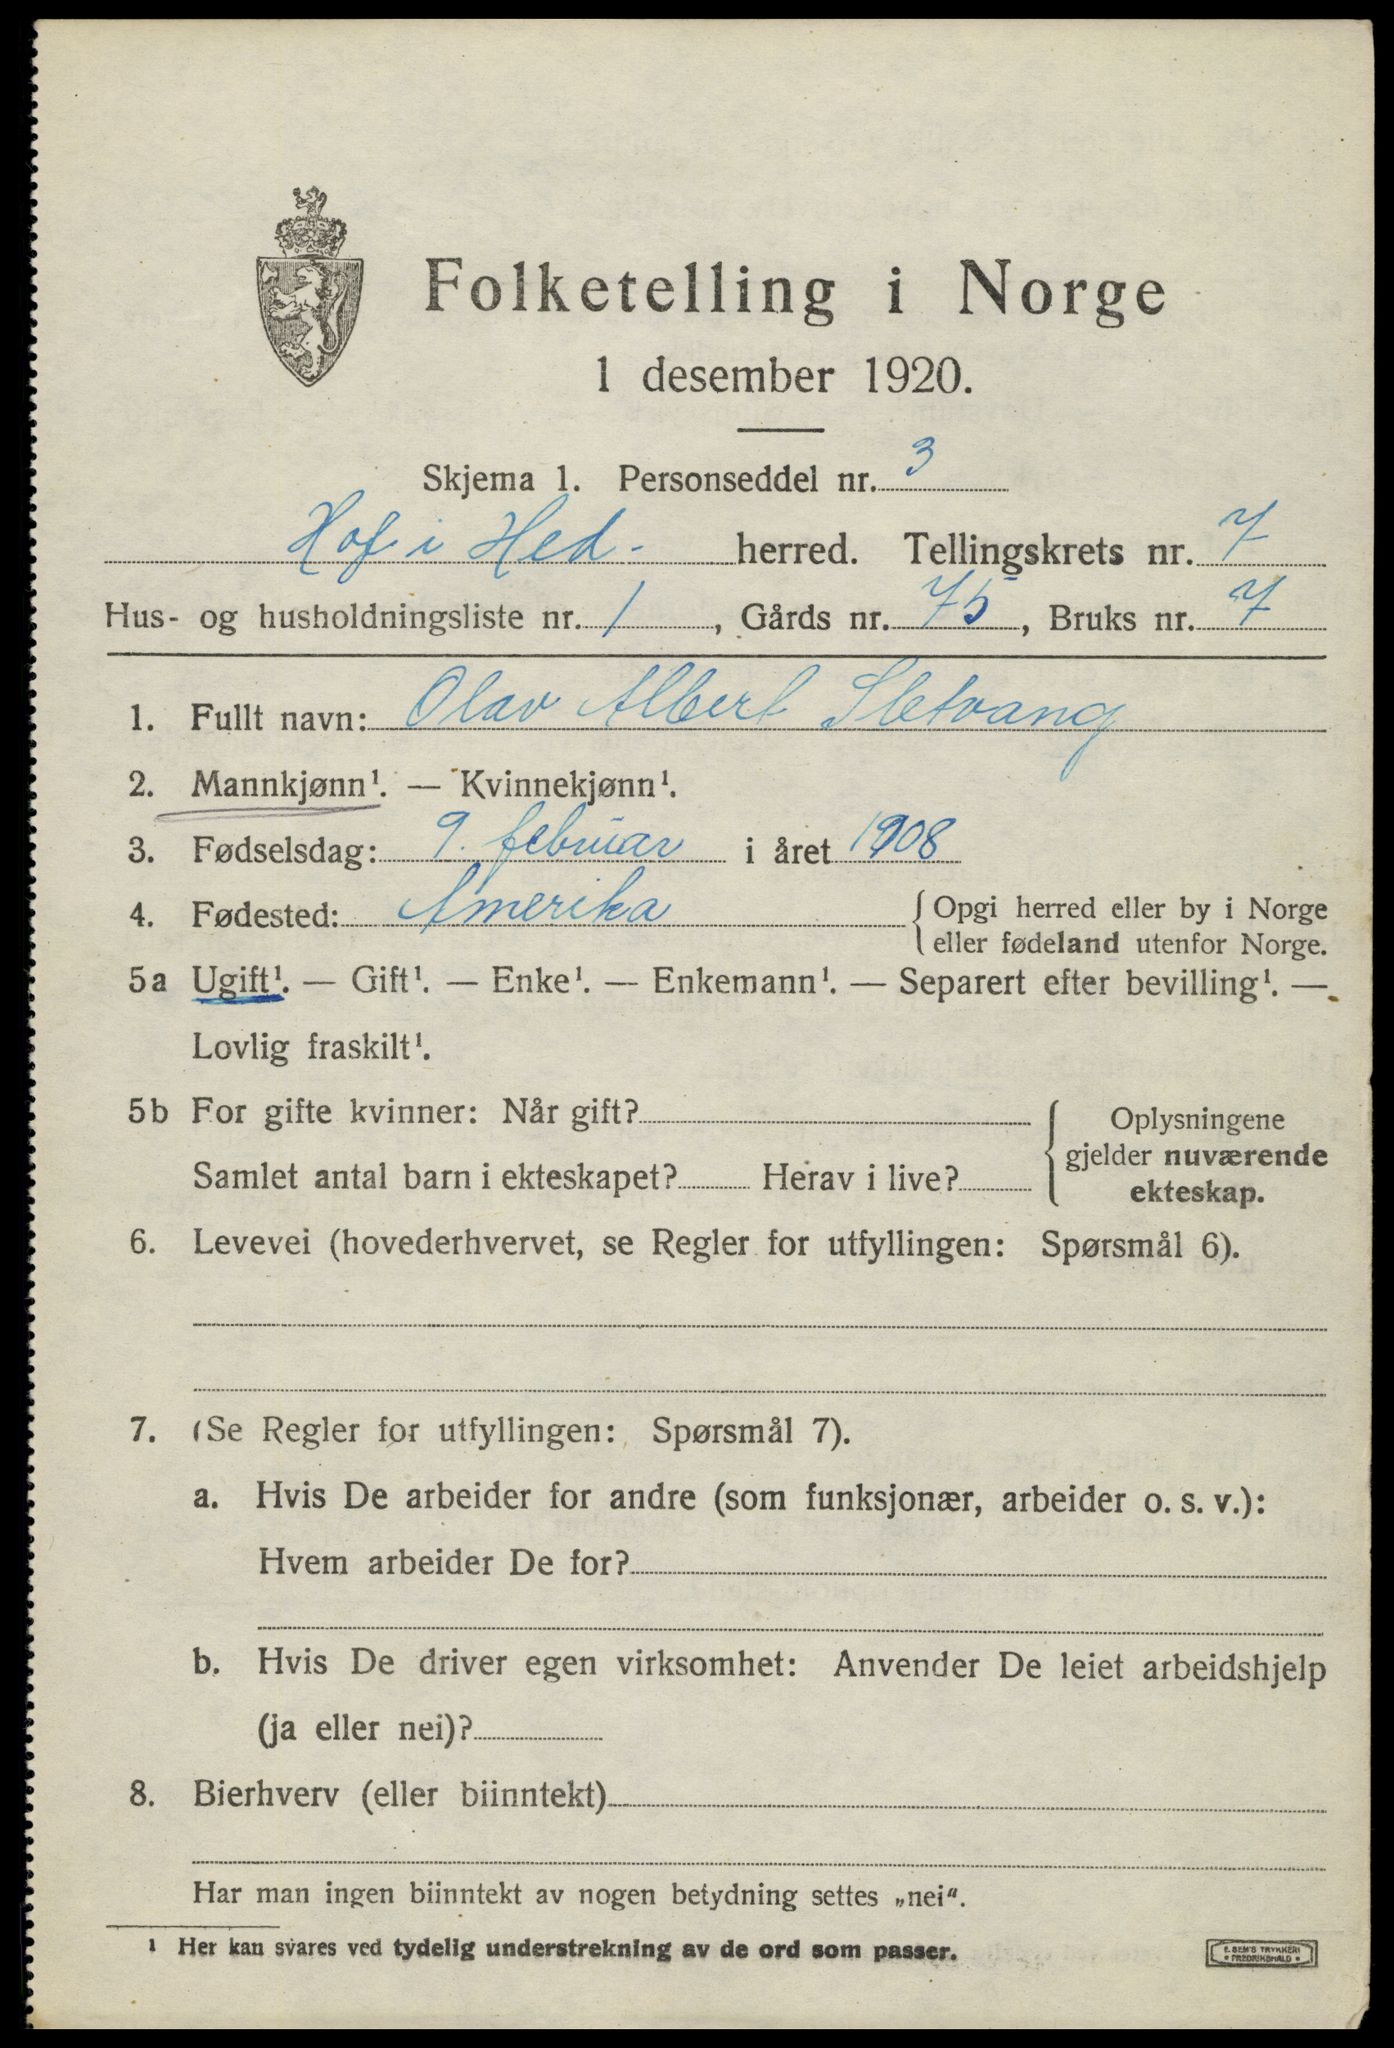 Folketelling i Norge
1 desember 1920.
Skjema 1. Personseddel nr. 3
Hof i Hed. herred. Tellingskrets nr. 7
Hus- og husholdningsliste nr. 1, Gårds nr. 75, Bruks nr. 7
1. Fullt navn: Olav Albert Sletvang
2. Mannkjønn¹. — Kvinnekjønn¹.
3. Fødselsdag: 9. februar i året 1908
4. Fødested: Amerika { Opgi herred eller by i Norge
eller fødeland utenfor Norge.
5a Ugift¹. — Gift¹. — Enke¹. — Enkemann¹. — Separert efter bevilling¹. —
Lovlig fraskilt¹.
5b For gifte kvinner: Når gift?
Samlet antal barn i ekteskapet? Herav i live?
{ Oplysningene
gjelder nuværende
ekteskap.
6. Levevei (hovederhvervet, se Regler for utfyllingen: Spørsmål 6).
7. (Se Regler for utfyllingen: Spørsmål 7).
a. Hvis De arbeider for andre (som funksjonær, arbeider o. s. v.):
Hvem arbeider De for?
b. Hvis De driver egen virksomhet: Anvender De leiet arbeidshjelp
(ja eller nei)?
8. Bierhverv (eller biinntekt)
Har man ingen biinntekt av nogen betydning settes „nei“.
¹ Her kan svares ved tydelig understrekning av de ord som passer.
E. SEM'S TRYKKERI
FREDRIKSHALD